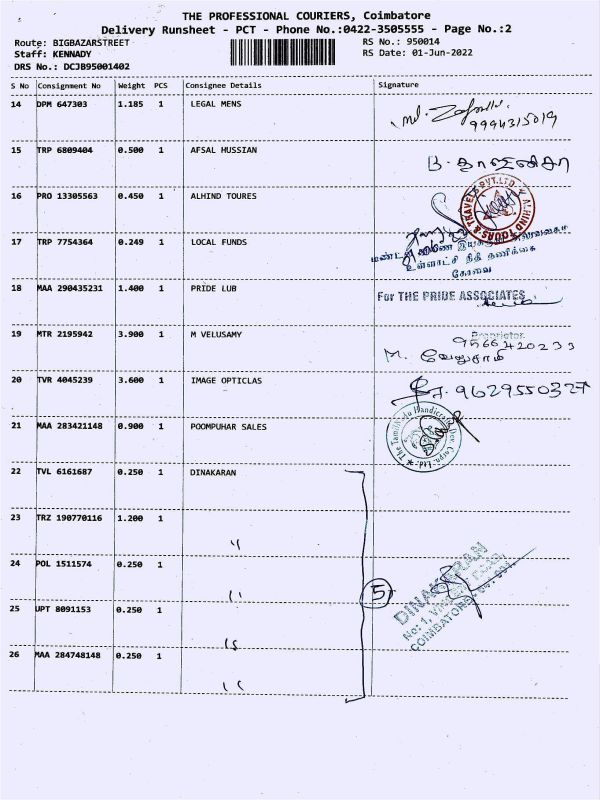 THE PROFESSIONAL COURIERS, Coimbatore
Delivery Runsheet - PCT - Phone No.:0422-3505555 - Page No.:2
Route: BIGBAZARSTREET RS No.: 950014
Staff: KENNADY RS Date: 01-Jun-2022
DRS No.: DCJB95001402
S No Consignment No Weight PCS Consignee Details Signature
14 DPM 647303 1.185 1 LEGAL MENS
9994315019
15 TRP 6809404 0.500 1 AFSAL HUSSIAN
16 PRO 13305563 0.450 1 ALHIND TOURES
17 TRP 7754364 0.249 1 LOCAL FUNDS
உள்ளாட்சி நிதி தணிக்கை
கோவை
18 MAA 290435231 1.400 1 PRIDE LUB For THE PRIDE ASSOCIATES
Proprietor
19 MTR 2195942 3.900 1 M VELUSAMY 9566420233
M. வேலுசாமி
20 TVR 4045239 3.600 1 IMAGE OPTICLAS 9629550327
21 MAA 283421148 0.900 1 POOMPUHAR SALES
The Tamil Nadu Handicrafts Dev. Corpn. Ltd.
22 TVL 6161687 0.250 1 DINAKARAN
23 TRZ 190770116 1.200 1 "
24 POL 1511574 0.250 1 "
5
DINAKARAN
25 UPT 8091153 0.250 1 "
26 MAA 284748148 0.250 1 "